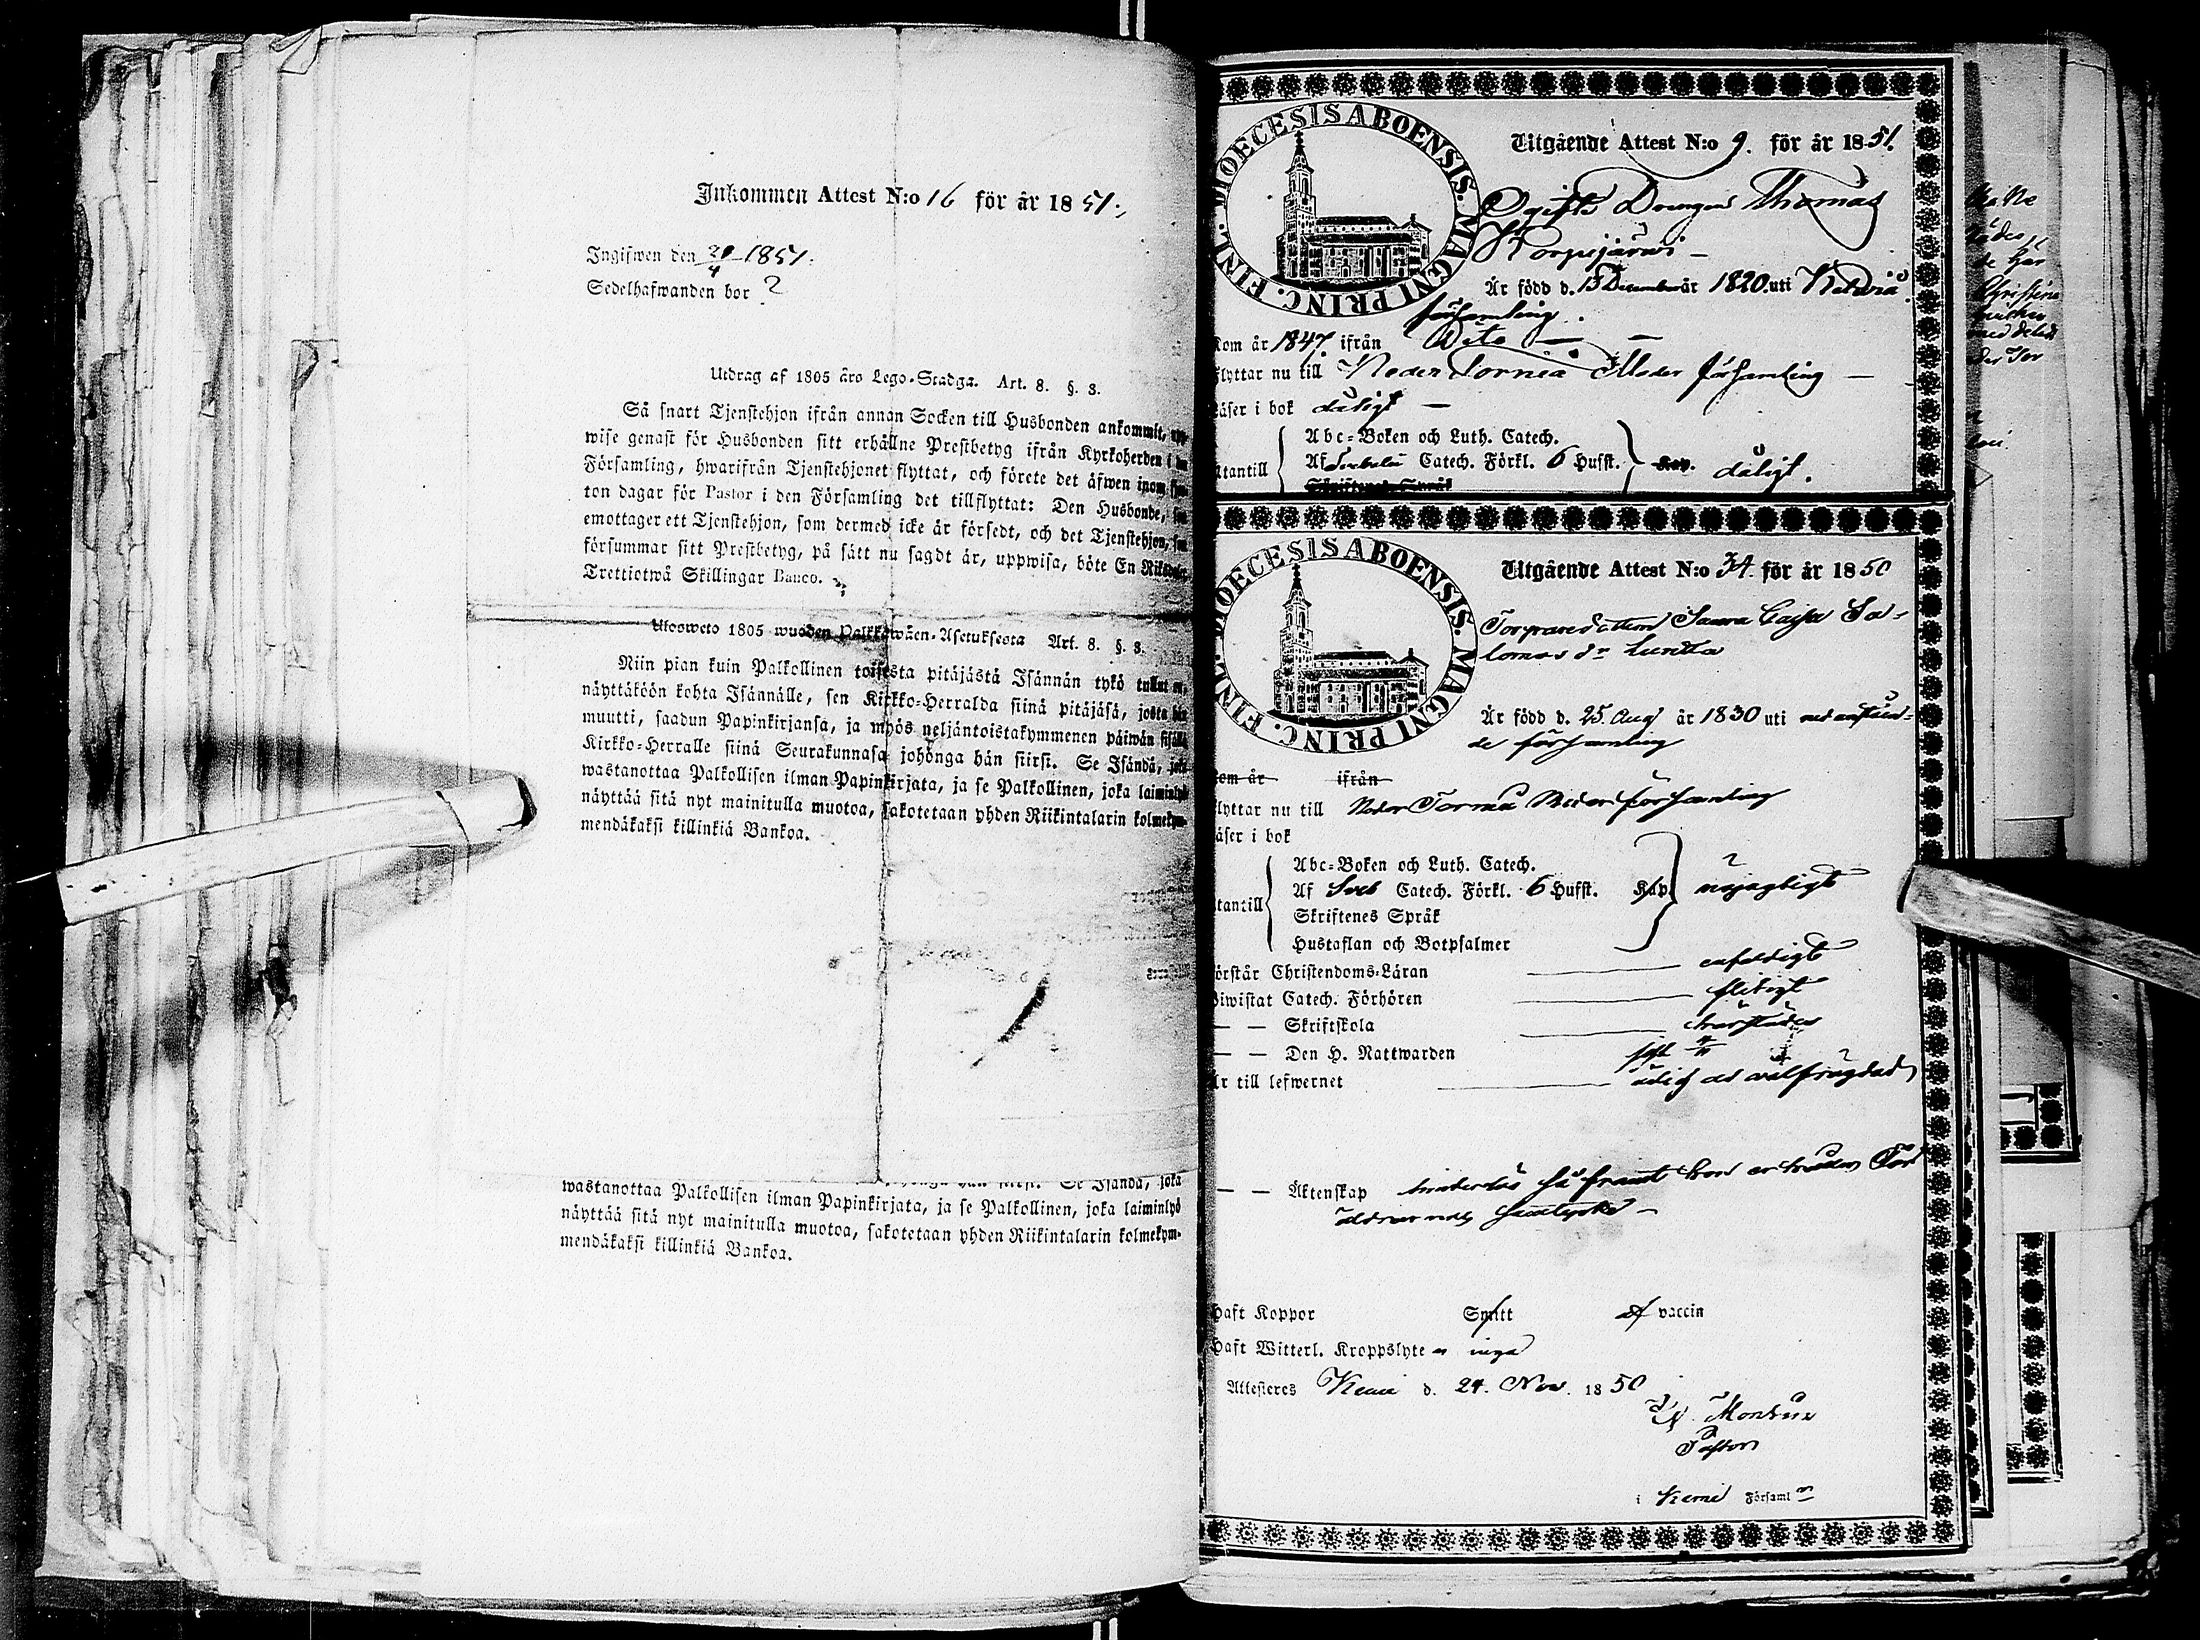 Inkommen Attest N:o 16 för år 1851.
Ingifwen den 21/4 1851.
Sedelhafwanden bor ?
Utdrag af 1805 års Lego-Stadga. Art. 8. §. 3.
Så snart Tjenstehjon ifrån annan Socken till Husbonden ankommit,
wise genast för Husbonden sitt erhållne Prestbetyg ifrån Kyrkoherden i
Församling, hwarifrån Tjenstehjonet flyttat, och förete det äfwen inom
ton dagar för Pastor i den Församling det tillflyttat: Den Husbonde,
emottager ett Tjenstehjon, som dermed icke är försedt, och det Tjenstehjon,
försummar sitt Prestbetyg, på sätt nu sagdt är, uppwisa, böte En Riksdaler
Trettiotwå Skillingar Banco.
Ulosweto 1805 wuoden Palkkawäen-Asetuksesta Art. 8. §. 3.
Niin pian kuin Palkollinen toisesta pitäjästä Isännän tykö tullut on,
näyttäköön kohta Isännälle, sen Kirkko-Herralda siinä pitäjäsä, josta hän
muutti, saadun Papinkirjansa, ja myös neljäntoistakymmenen päiwän sisällä
Kirkko-Herralle siinä Seurakunnasa johonga hän siirsi. Se Isändä, joka
wastanottaa Palkollisen ilman Papinkirjata, ja se Palkollinen, joka laiminlyö
näyttää sitä nyt mainitulla muotoa, sakotetaan yhden Riikintalarin kolmekym-
mendäkaksi killinkiä Bankoa.
Se Isändä, joka
wastanottaa Palkollisen ilman Papinkirjata, ja se Palkollinen, joka laiminlyö
näyttää sitä nyt mainitulla muotoa, sakotetaan yhden Riikintalarin kolmekym-
mendäkaksi killinkiä Bankoa.
DIOECESIS ABOENSIS. MAGNI PRINC. FINL.
Utgående Attest N:o 9. för år 1851.
Ogifte Drengen Thomas
Korpijärwi
Är född d. 13 December år 1820 uti
församling.
kom år 1847 ifrån Dito
flyttar nu till Neder Torneå Moder församling
Läser i bok dåligt
Abc-Boken och Luth. Catech.
utantill Af Catech. Förkl. 6 Hufst. Kap. dåligt.
Skriftenes Språk
DIOECESIS ABOENSIS. MAGNI PRINC. FINL.
Utgående Attest N:o 34. för år 1850
Torparedottern Saara Cajsa Sa-
lomos dr
Är född d. 25. Aug år 1830 uti nedanståen-
de församling
kom år ifrån
flyttar nu till Neder Torneå Moder församling
läser i bok
Abc-Boken och Luth. Catech.
utantill Af Sveb Catech. Förkl. 6 Hufst. Kap. nöjagtigt
Skriftenes Språk
Hustaflan och Botpsalmer
förstår Christendoms-Läran enfaldigt
biwistat Catech. Förhören flitigt
— — Skriftskola
— — Den H. Nattwarden
är till lefwernet ärlig och wälfrägdad
— — Äktenskap hinderlös så framt hon erhåller För
äldrarnes samtycke
haft Koppor Smitt af vaccin
haft Witterl. Kroppslyte inga
Attesteres Kemi d. 24. Nov. 1850
Pastor
i Kemi Församl